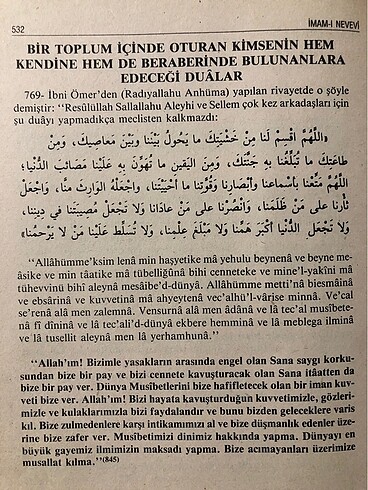 532
İMAM-I NEVEVİ
BİR TOPLUM İÇİNDE OTURAN KİMSENİN HEM
KENDİNE HEM DE BERABERİNDE BULUNANLARA
EDECEĞİ DUÂLAR
769- İbni Ömer'den (Radıyallahu Anhüma) yapılan rivayetde o şöyle
demiştir: "Resûlüllah Sallallahu Aleyhi ve Sellem çok kez arkadaşları için
şu duâyı yapmadıkça meclisten kalkmazdı:
«اللَّهُمَّ اقْسِمْ لَنا مِنْ خَشْيَتِكَ ما يَحُولُ بَيْنَنا وبَيْنَ مَعاصِيكَ، وَمِنْ
طاعَتِكَ ما تُبَلِّغُنا بِهِ جَنَّتَكَ، وَمِنَ اليَقِينِ ما تُهَوِّنُ بِهِ عَلَيْنا مَصَائِبَ الدُّنْيا؛
اللَّهُمَّ مَتِّعْنا بأسْماعنا وأبْصَارِنا وقُوَّتِنا ما أحْيَيْتَنا، واجْعَلْهُ الوَارِثَ مِنَّا، وَاجْعَلْ
ثأْرنا على مَنْ ظَلَمَنا، وَانْصُرْنا على مَنْ عادَانا وَلا تَجْعَلْ مُصِيبَتَنا في دِينِنا،
وَلا تَجْعَلِ الدُّنْيا أكْبَرَ هَمِّنا وَلا مَبْلَغَ عِلْمِنا، وَلا تُسَلِّطْ عَلَيْنا مَنْ لا يَرْحَمُنا»
"Allâhümme'ksim lenâ min haşyetike mâ yehulu beynenâ ve beyne me-
âsike ve min tâatike mâ tübelliğunâ bihî cenneteke ve mine'l-yakîni mâ
tühevvinü bihî aleynâ mesâibe'd-dünyâ. Allâhümme metti'nâ biesmâinâ
ve ebsârinâ ve kuvvetinâ mâ ahyeytenâ vec'alhu'l-vârise minnâ. Ve'cal
se'renâ alâ men zalemnâ. Vensurnâ alâ men âdânâ ve lâ tec'al musîbete-
nâ fî dîninâ ve lâ tec'ali'd-dünyâ ekbere hemminâ ve lâ mebleğa ilminâ
ve lâ tusellit aleynâ men lâ yerhamunâ."
"Allah'ım! Bizimle yasakların arasında engel olan Sana saygı korku-
sundan bize bir pay ve bizi cennete kavuşturacak olan Sana itâatten da
bize bir pay ver. Dünya Musîbetlerini bize hafifletecek olan bir iman kuv-
veti bize ver. Allah'ım! Bizi hayata kavuşturduğun kuvvetimizle, gözleri-
mizle ve kulaklarımızla bizi faydalandır ve bunu bizden geleceklere varis
kıl. Bize zulmedenlere karşı intikamımızı al ve bize düşmanlık edenler üze-
rine bize zafer ver. Musîbetimizi dinimiz hakkında yapma. Dünyayı en
büyük gayemiz ilmimizin maksadı yapma. Bize acımayanları üzerimize
musallat kılma."(845)